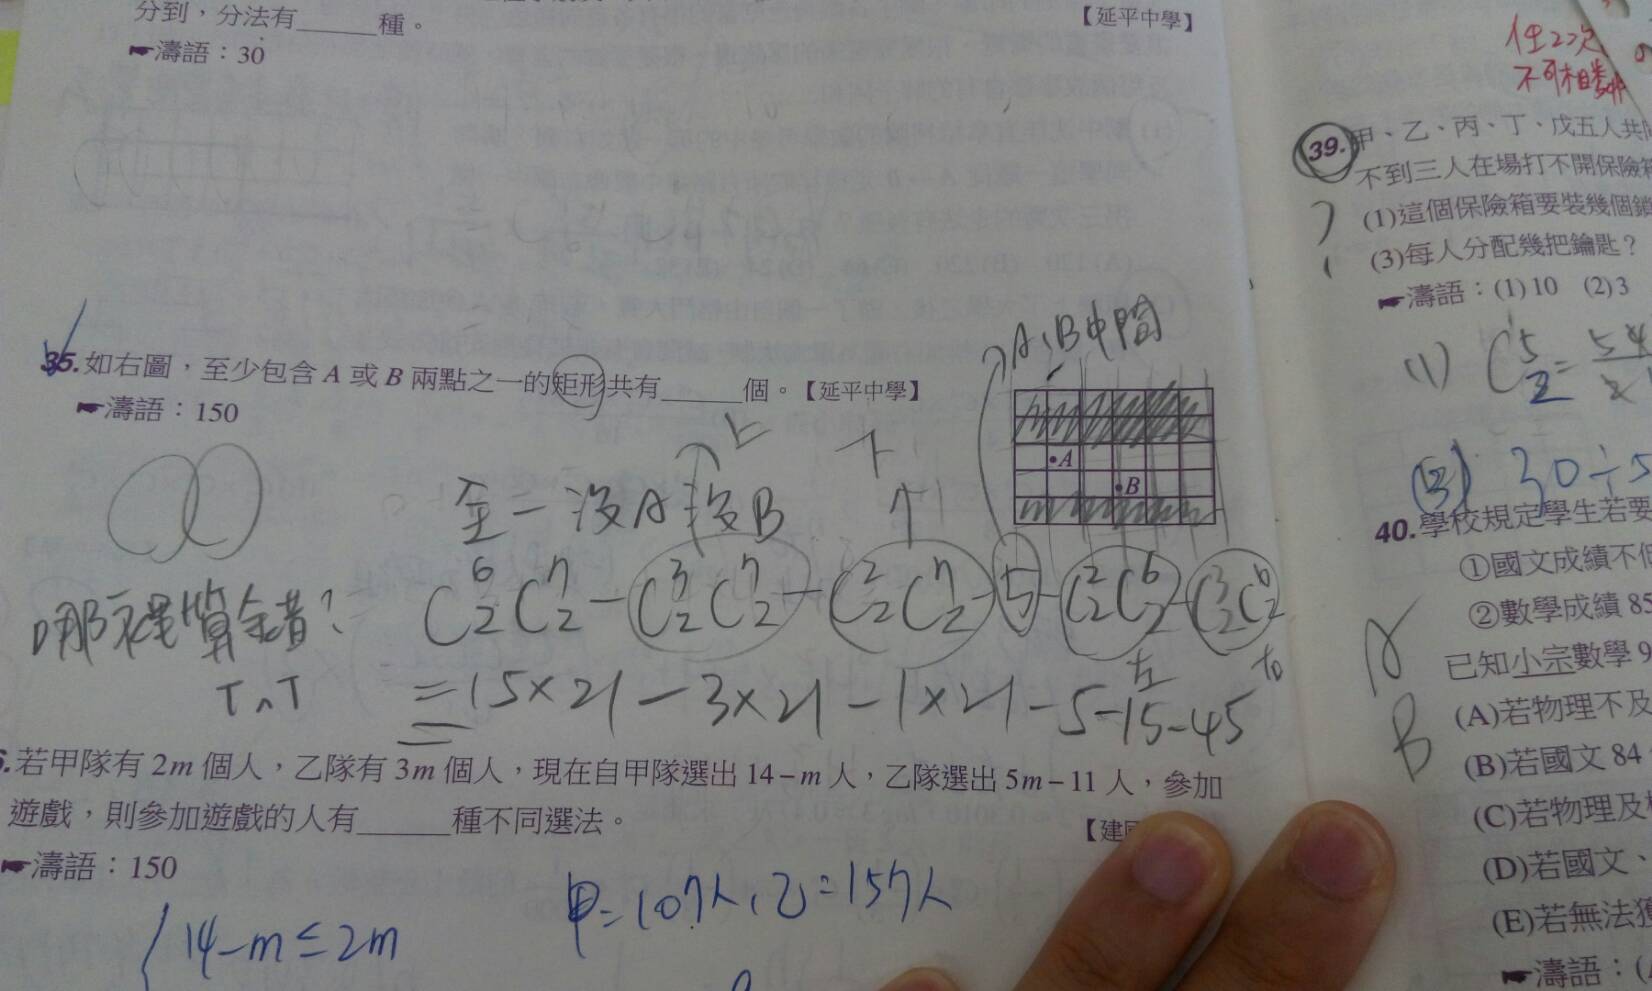 分到,分法有______種。
【延平中學】
☛濤語:30
35.如右圖,至少包含 A 或 B 兩點之一的矩形共有______個。【延平中學】
☛濤語:150
A、B中間
A
B
上
下
全-沒A沒B
哪裡算錯?
TnT
C⁶₂C⁷₂-C³₂C⁷₂-C²₂C⁷₂-5-C²₂C⁶₂-C³₂C⁶₂
左
右
=15×21-3×21-1×21-5-15-45
6.若甲隊有 2m 個人,乙隊有 3m 個人,現在自甲隊選出 14-m 人,乙隊選出 5m-11 人,參加
遊戲,則參加遊戲的人有______種不同選法。
☛濤語:150
甲=10人,乙=15人
14-m≤2m
任2次
39.甲、乙、丙、丁、戊五人共
不到三人在場打不開保險
(1)這個保險箱要裝幾個
(3)每人分配幾把鑰匙?
☛濤語:(1)10 (2)3
(1) C⁵₂=
(3) 30÷5
40.學校規定學生若要
①國文成績不
②數學成績 85
已知小宗數學 9
(A)若物理不及
(B)若國文 84
(C)若物理及
(D)若國文、
(E)若無法
☛濤語:(
B